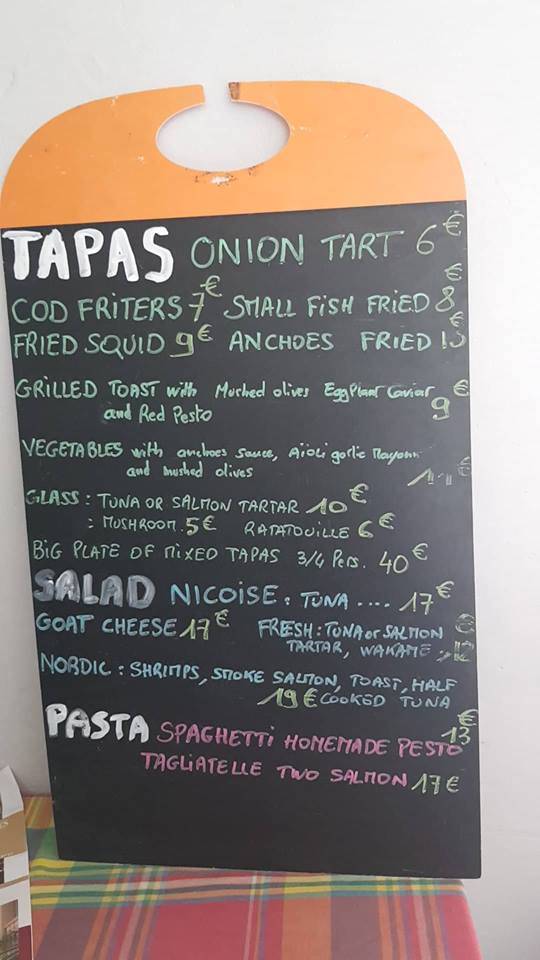 TAPAS ONION TART 6€
COD FRITERS 7€ SMALL FISH FRIED 8€
FRIED SQUID 9€ ANCHOES FRIED €
GRILLED TOAST with Mushed olives EggPlant Caviar
and Red Pesto 9€
VEGETABLES with anchoes sauce, Aïoli garlic
and mushed olives €
GLASS: TUNA OR SALMON TARTAR 10€
: MUSHROOM. 5€ RATATOUILLE 6€
BIG PLATE OF MIXED TAPAS 3/4 Pers. 40€
SALAD NICOISE: TUNA .... 17€
GOAT CHEESE 17€ FRESH: TUNA or SALMON €
TARTAR, WAKAME
NORDIC: SHRIMPS, SMOKE SALMON, TOAST, HALF
19€ COOKED TUNA
PASTA SPAGHETTI HOMEMADE PESTO 13€
TAGLIATELLE TWO SALMON 17€